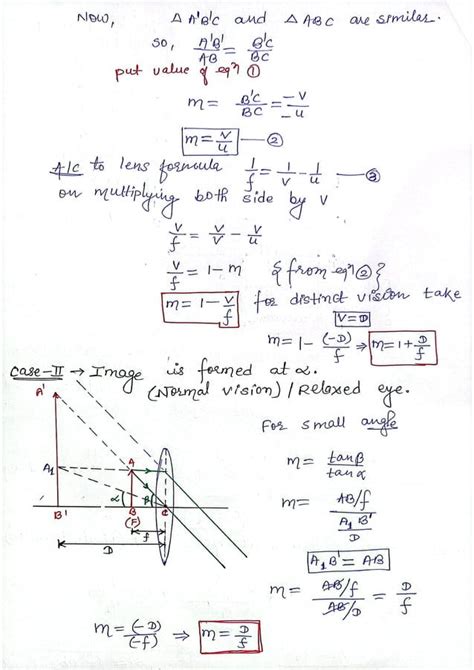 Now, △ A'B'C and △ ABC are similar.
so, A'B'/AB = B'C/BC
put value of eqⁿ ①
m = B'C/BC = -v/-u
m = v/u — ②
A/C to lens formula 1/f = 1/v - 1/u — ③
on multiplying both side by v
v/f = v/v - v/u
v/f = 1 - m {from eqⁿ ②}
m = 1 - v/f for distinct vision take
v = D
m = 1 - (-D)/f ⇒ m = 1 + D/f
Case-II → Image is formed at α.
(Normal vision) / Relaxed eye.
For small angle
A'
A₁
B'
A
B
(F)
C
α
β
f
D
m = tanβ/tanα
m = AB/f / A₁B'/D
A₁B' = AB
m = AB/f / AB/D = D/f
m = (-D)/(-f) ⇒ m = D/f